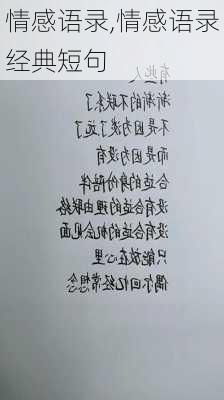 情感语录,情感语录
经典短句
有些人
渐渐的不联系了
不是因为淡了远了
而是因为没有
合适的身份陪伴
没有合适的理由联络
没有合适的机会见面
只能放在心里
偶尔回忆经常想念